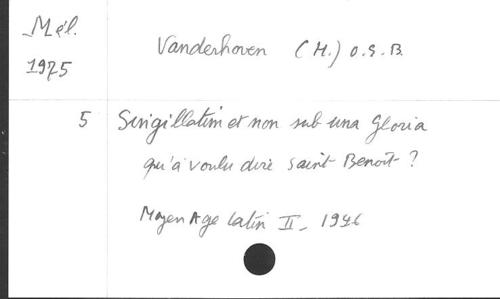 Mél.
1975
Vanderhoven (H.) O.S.B.
5 Singillatim et non sub una Gloria
qu'a voulu dire Saint Benoît ?
Moyen Age latin II_ 1946